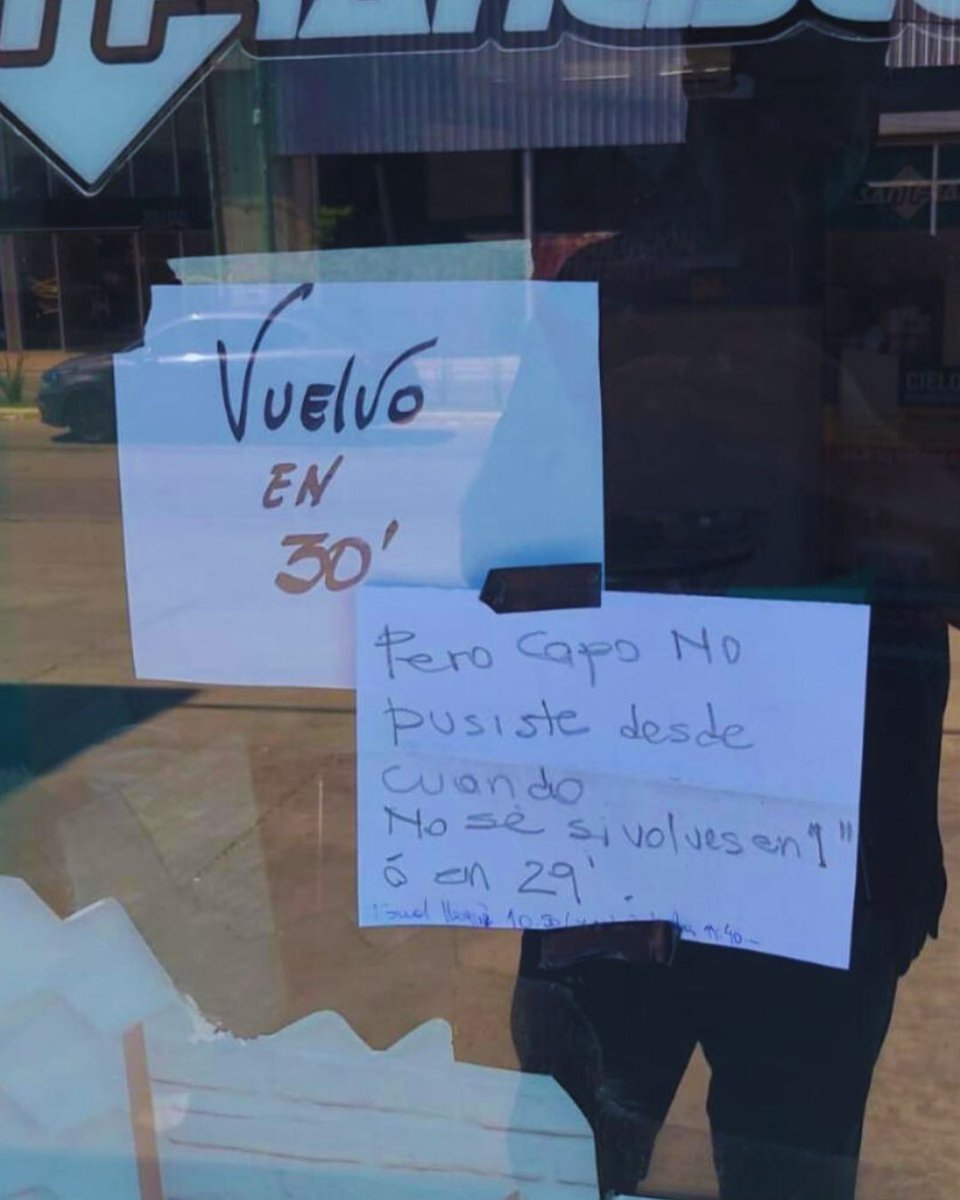 Vuelvo
EN
30'
Pero Capo No
pusiste desde
cuando
No sé si volves en 1"
ó en 29'
Igual llegué 10
CIELO